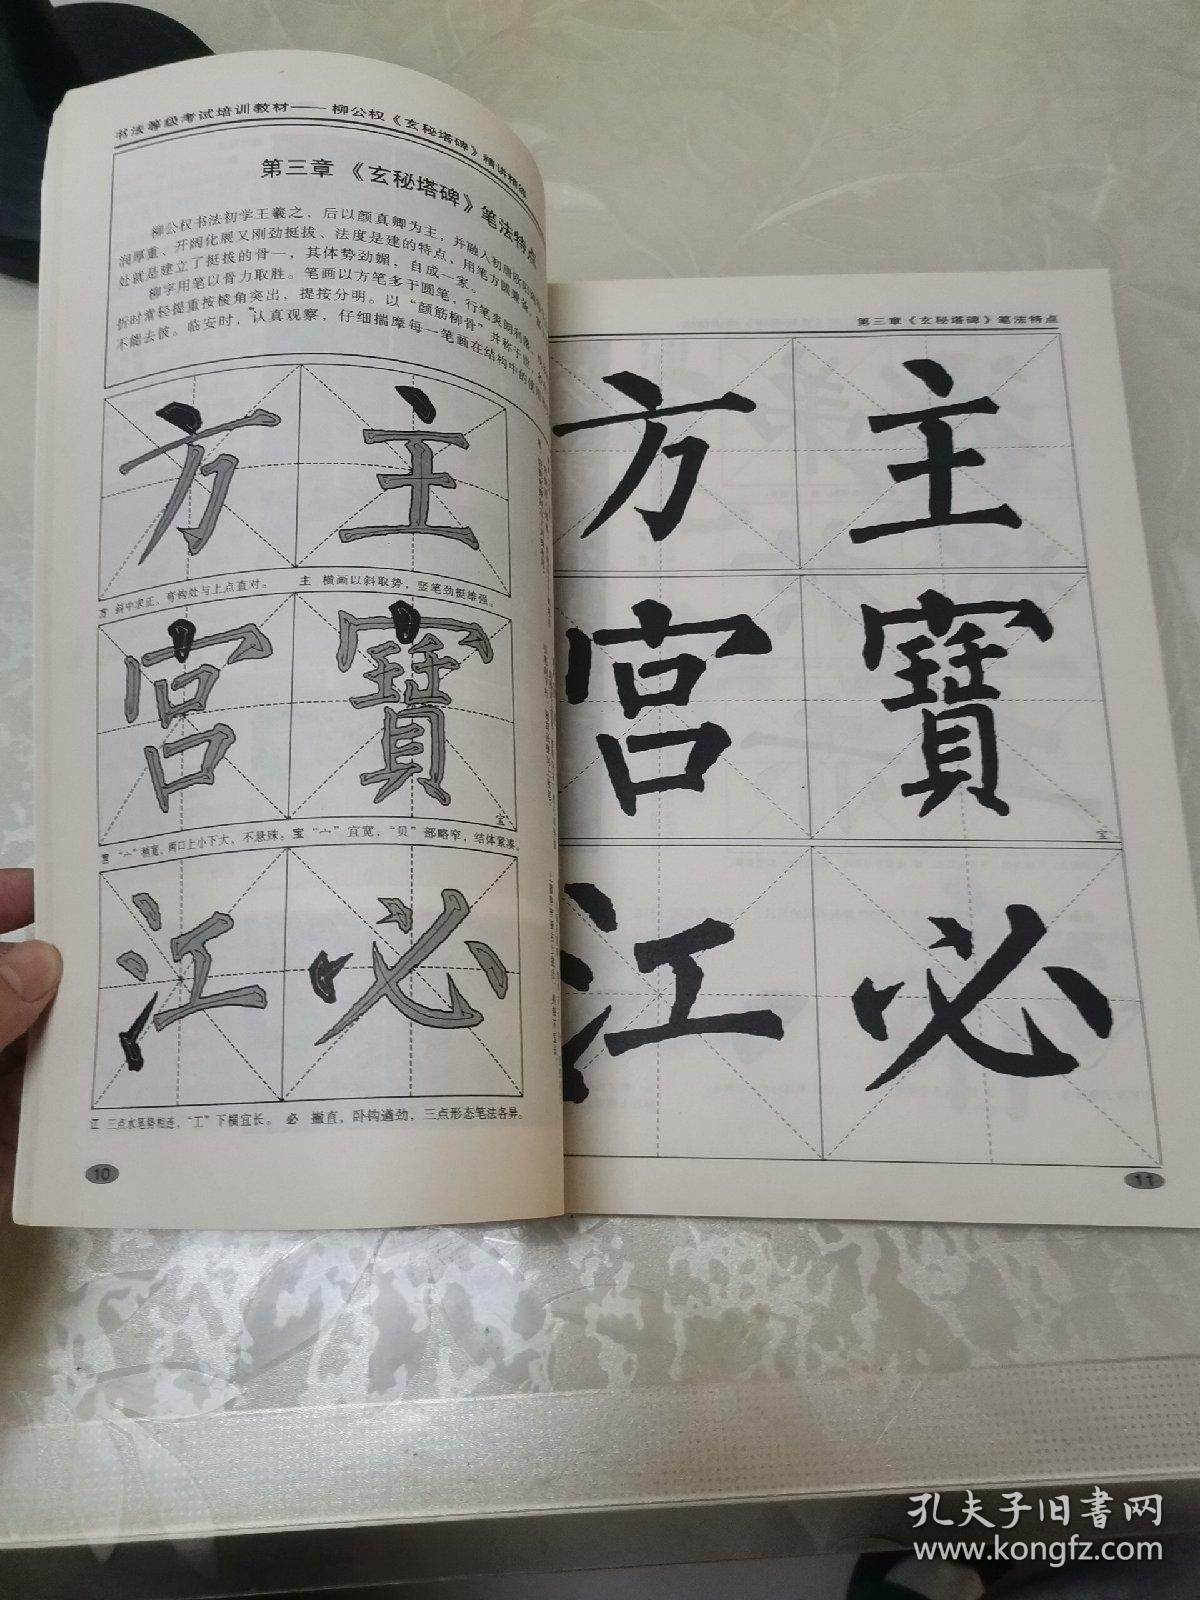 书法等级考试培训教材——柳公权《玄秘塔碑》精讲精练
第三章 《玄秘塔碑》笔法特点
柳公权书法初学王羲之、后以颜真卿为主，并融入初唐欧阳
润厚重、开阔化展又刚劲挺拔、法度是建的特点，用笔方圆兼备，
处就是建立了挺拔的骨一，其体势劲媚，自成一家。
柳字用笔以骨力取胜。笔画以方笔多于圆笔，行笔爽朗利落，
折时常轻提重按棱角突出，提按分明。以“颜筋柳骨”并称于世，
不能去彼。临安时，认真观察，仔细揣摩每一笔画在结构中的使用
方 主
方 斜中求正、弯钩处与上点直对。 主 横画以斜取势，竖笔劲挺雄强。
宫 寶
宝
宫 “宀”稍宽，两口上小下大，不悬殊。宝 “宀”宜宽，“贝”部略窄，结体紧凑。
江 必
江 三点水笔势相连，“工”下横宜长。 必 撇直，卧钩遒劲，三点形态笔法各异。
10
第三章《玄秘塔碑》笔法特点
方 主
宫 寶
宝
江 必
11
孔夫子旧书网
www.kongfz.com